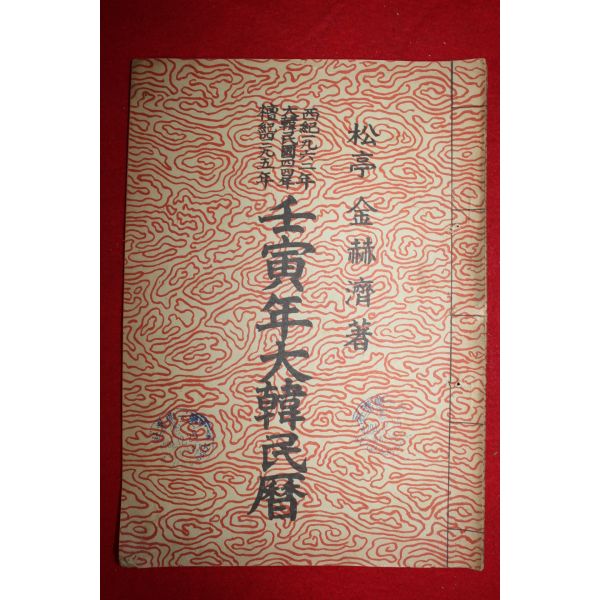 松亭 金赫濟著
西紀一九六二年
大韓民國四四年
檀紀四二九五年
壬寅年大韓民暦